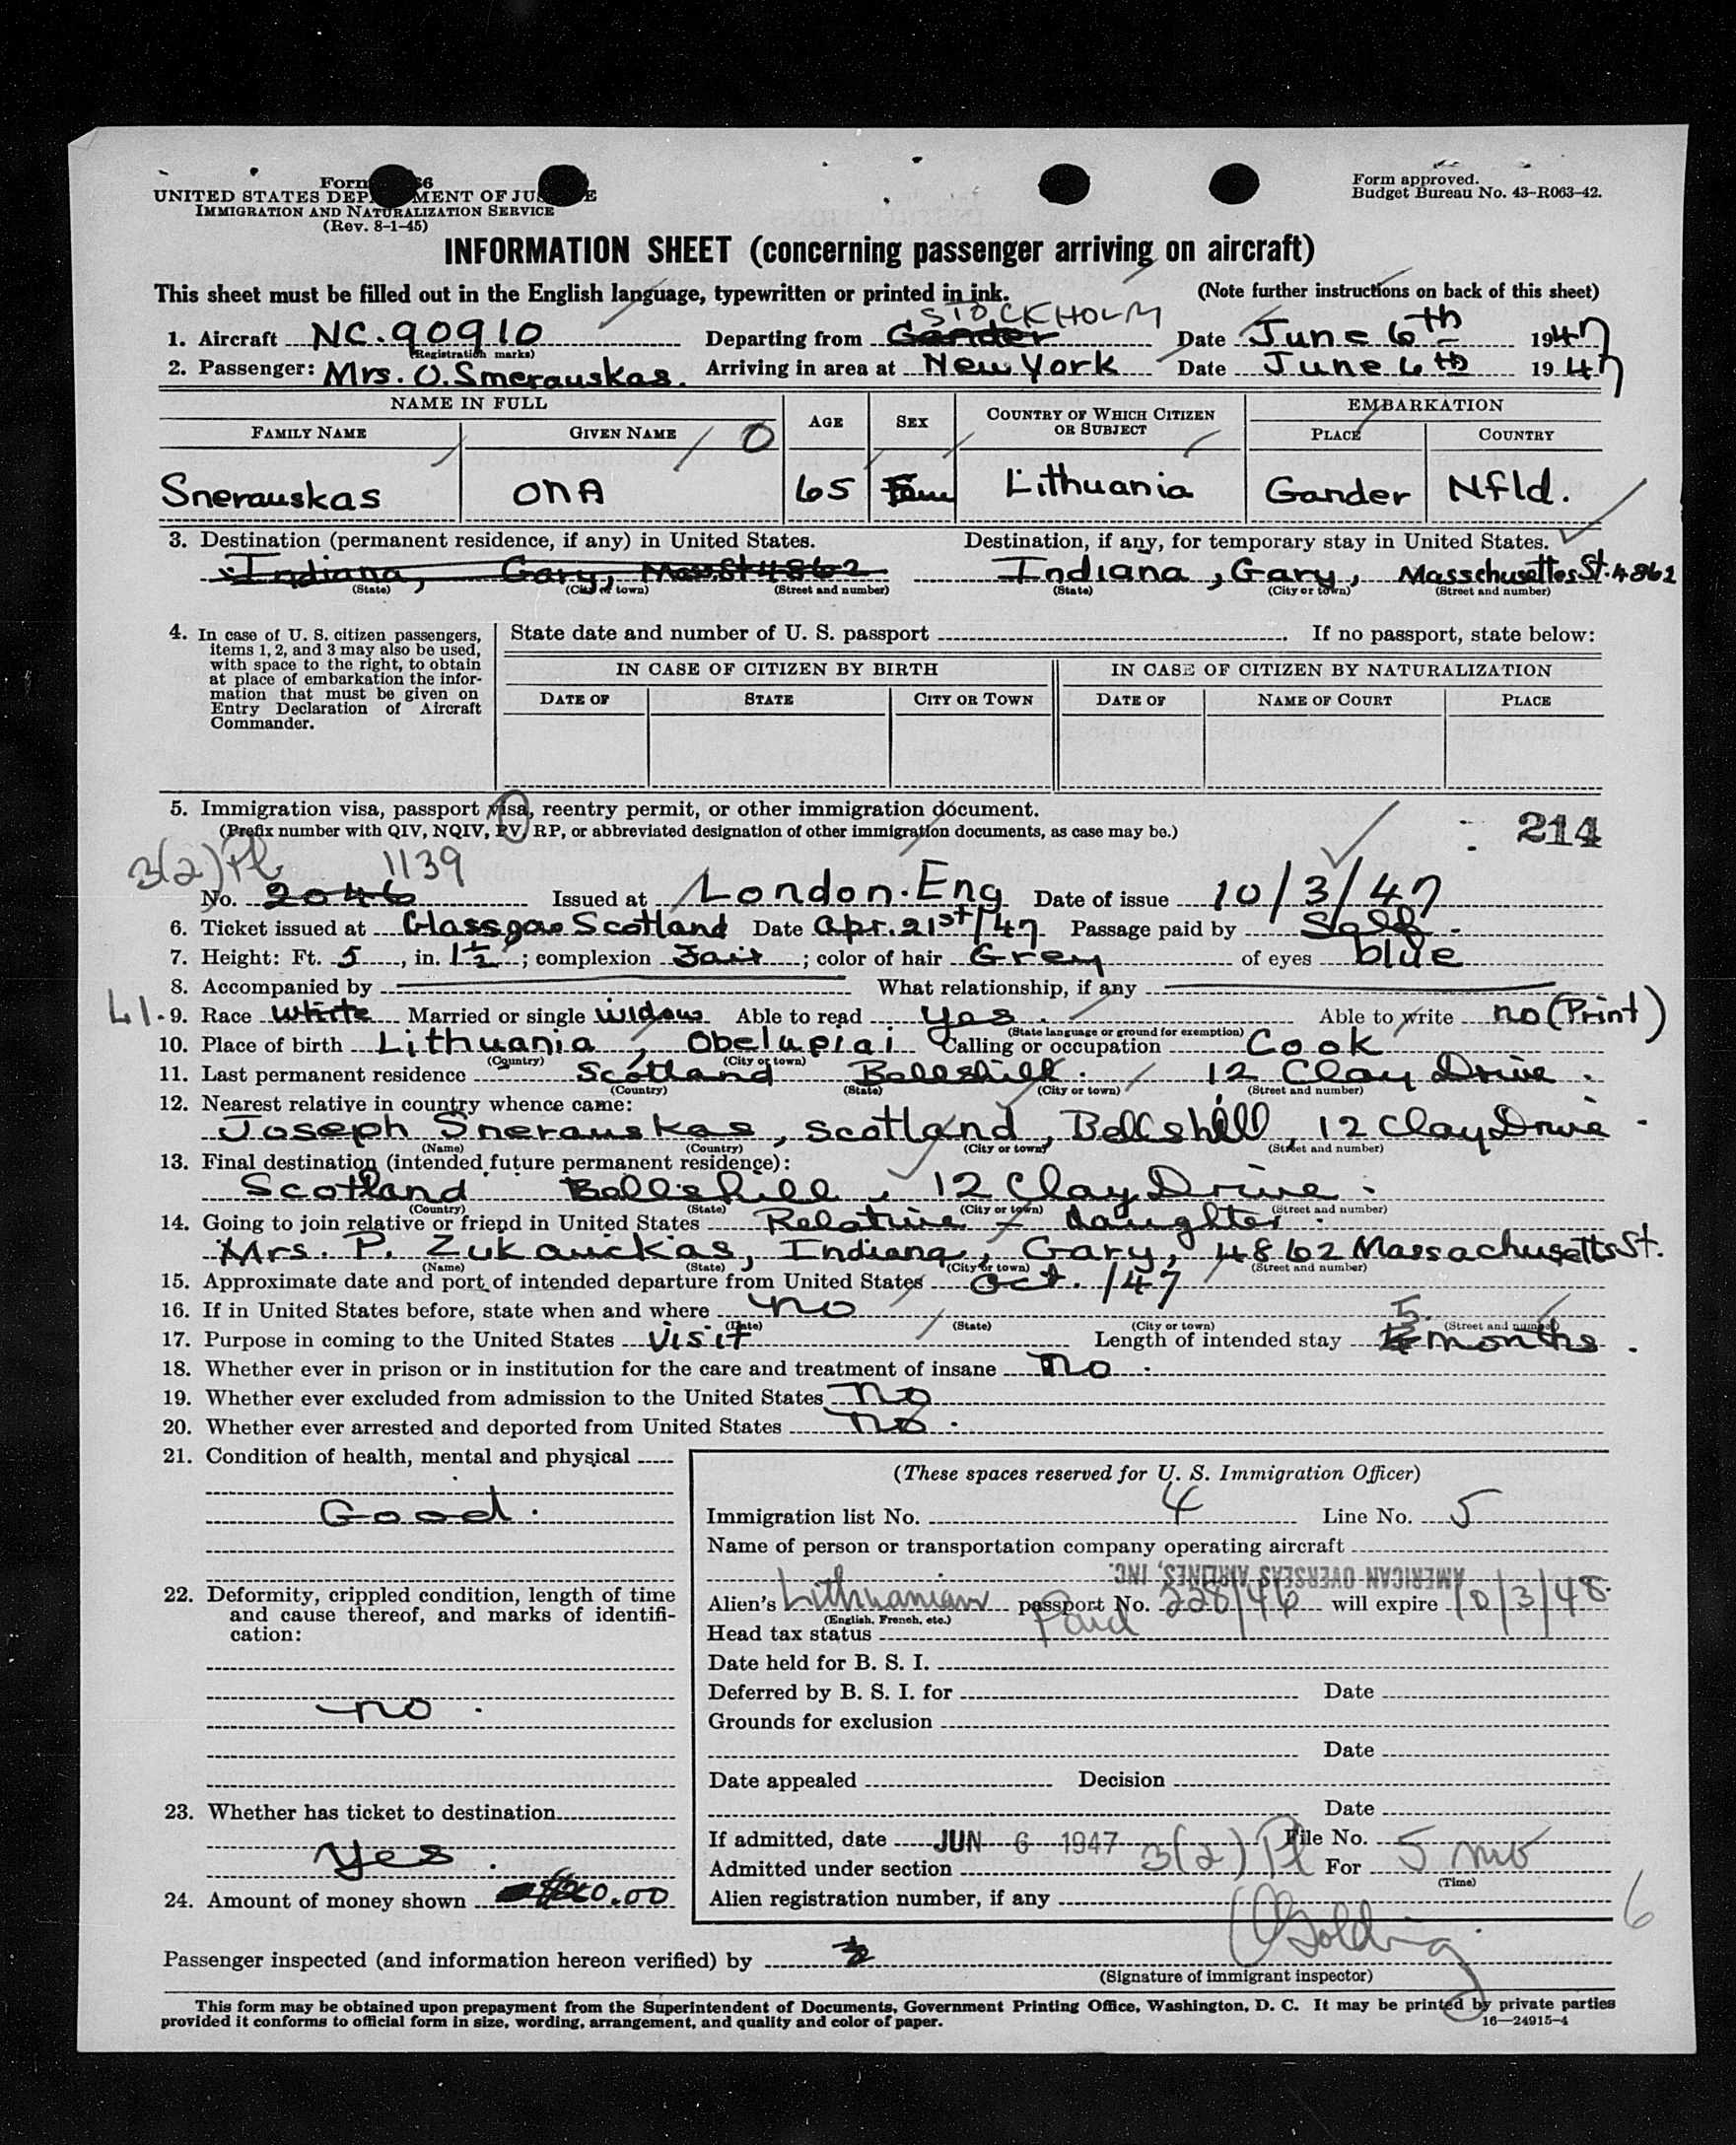 Form 66
UNITED STATES DEP MENT OF JUS E
IMMIGRATION AND NATURALIZATION SERVICE
(Rev. 8-1-45)
Form approved.
Budget Bureau No. 43-R063-42.
INFORMATION SHEET (concerning passenger arriving on aircraft)
This sheet must be filled out in the English language, typewritten or printed in ink. (Note further instructions on back of this sheet)
STOCKHOLM
1. Aircraft NC.90910 Departing from Gander Date June 6th 1947
(Registration marks)
2. Passenger: Mrs. O. Smerauskas. Arriving in area at New York Date June 6th 1947
NAME IN FULL AGE SEX COUNTRY OF WHICH CITIZEN OR SUBJECT EMBARKATION
FAMILY NAME GIVEN NAME O PLACE COUNTRY
Snerauskas ONA 65 Fem Lithuania Gander Nfld.
3. Destination (permanent residence, if any) in United States. Destination, if any, for temporary stay in United States.
Indiana, Gary, Mass St 4862 Indiana, Gary, Masschusettes St. 4862
(State) (City or town) (Street and number) (State) (City or town) (Street and number)
4. In case of U. S. citizen passengers, items 1, 2, and 3 may also be used, with space to the right, to obtain at place of embarkation the information that must be given on Entry Declaration of Aircraft Commander.
State date and number of U. S. passport . If no passport, state below:
IN CASE OF CITIZEN BY BIRTH IN CASE OF CITIZEN BY NATURALIZATION
DATE OF STATE CITY OR TOWN DATE OF NAME OF COURT PLACE
5. Immigration visa, passport visa, reentry permit, or other immigration document.
(Prefix number with QIV, NQIV, PV, RP, or abbreviated designation of other immigration documents, as case may be.)
214
3(2) Pl 1139
No. 2046 Issued at London. Eng Date of issue 10/3/47
6. Ticket issued at Glassgow Scotland Date Apr. 21st/47. Passage paid by Self.
7. Height: Ft. 5, in. 1½; complexion Fair; color of hair Grey of eyes blue
8. Accompanied by What relationship, if any
9. Race White Married or single widow Able to read Yes. Able to write no (Print)
(State language or ground for exemption)
10. Place of birth Lithuania, Obelupiai Calling or occupation Cook
(Country) (City or town)
11. Last permanent residence Scotland Bellshill. 12 Clay Drive.
(Country) (State) (City or town) (Street and number)
12. Nearest relative in country whence came:
Joseph Snerauskas, Scotland, Bellshill, 12 Clay Drive.
(Name) (Country) (City or town) (Street and number)
13. Final destination (intended future permanent residence):
Scotland Bellshill, 12 Clay Drive.
(Country) (State) (City or town) (Street and number)
14. Going to join relative or friend in United States Relative - daughter.
Mrs. P. Zukauckas, Indiana, Gary, 4862 Massachusetts St.
(Name) (State) (City or town) (Street and number)
15. Approximate date and port of intended departure from United States Oct. /47
16. If in United States before, state when and where no
(Date) (State) (City or town) (Street and number)
17. Purpose in coming to the United States visit Length of intended stay 5 months.
18. Whether ever in prison or in institution for the care and treatment of insane no.
19. Whether ever excluded from admission to the United States no
20. Whether ever arrested and deported from United States no.
21. Condition of health, mental and physical
Good.
22. Deformity, crippled condition, length of time and cause thereof, and marks of identification:
no.
23. Whether has ticket to destination
yes.
24. Amount of money shown
(These spaces reserved for U. S. Immigration Officer)
Immigration list No. 4 Line No. 5
Name of person or transportation company operating aircraft
AMERICAN OVERSEAS AIRLINES, INC.
Alien's Lithuanian passport No. 228/46 will expire 10/3/48.
(English, French, etc.)
Head tax status Paid
Date held for B. S. I.
Deferred by B. S. I. for Date
Grounds for exclusion
Date
Date appealed Decision
Date
If admitted, date JUN 6 1947 File No.
Admitted under section 3(2) Pl For 5 mo
(Time)
Alien registration number, if any
6
Passenger inspected (and information hereon verified) by Golding
(Signature of immigrant inspector)
This form may be obtained upon prepayment from the Superintendent of Documents, Government Printing Office, Washington, D. C. It may be printed by private parties
provided it conforms to official form in size, wording, arrangement, and quality and color of paper. 16—24915-4